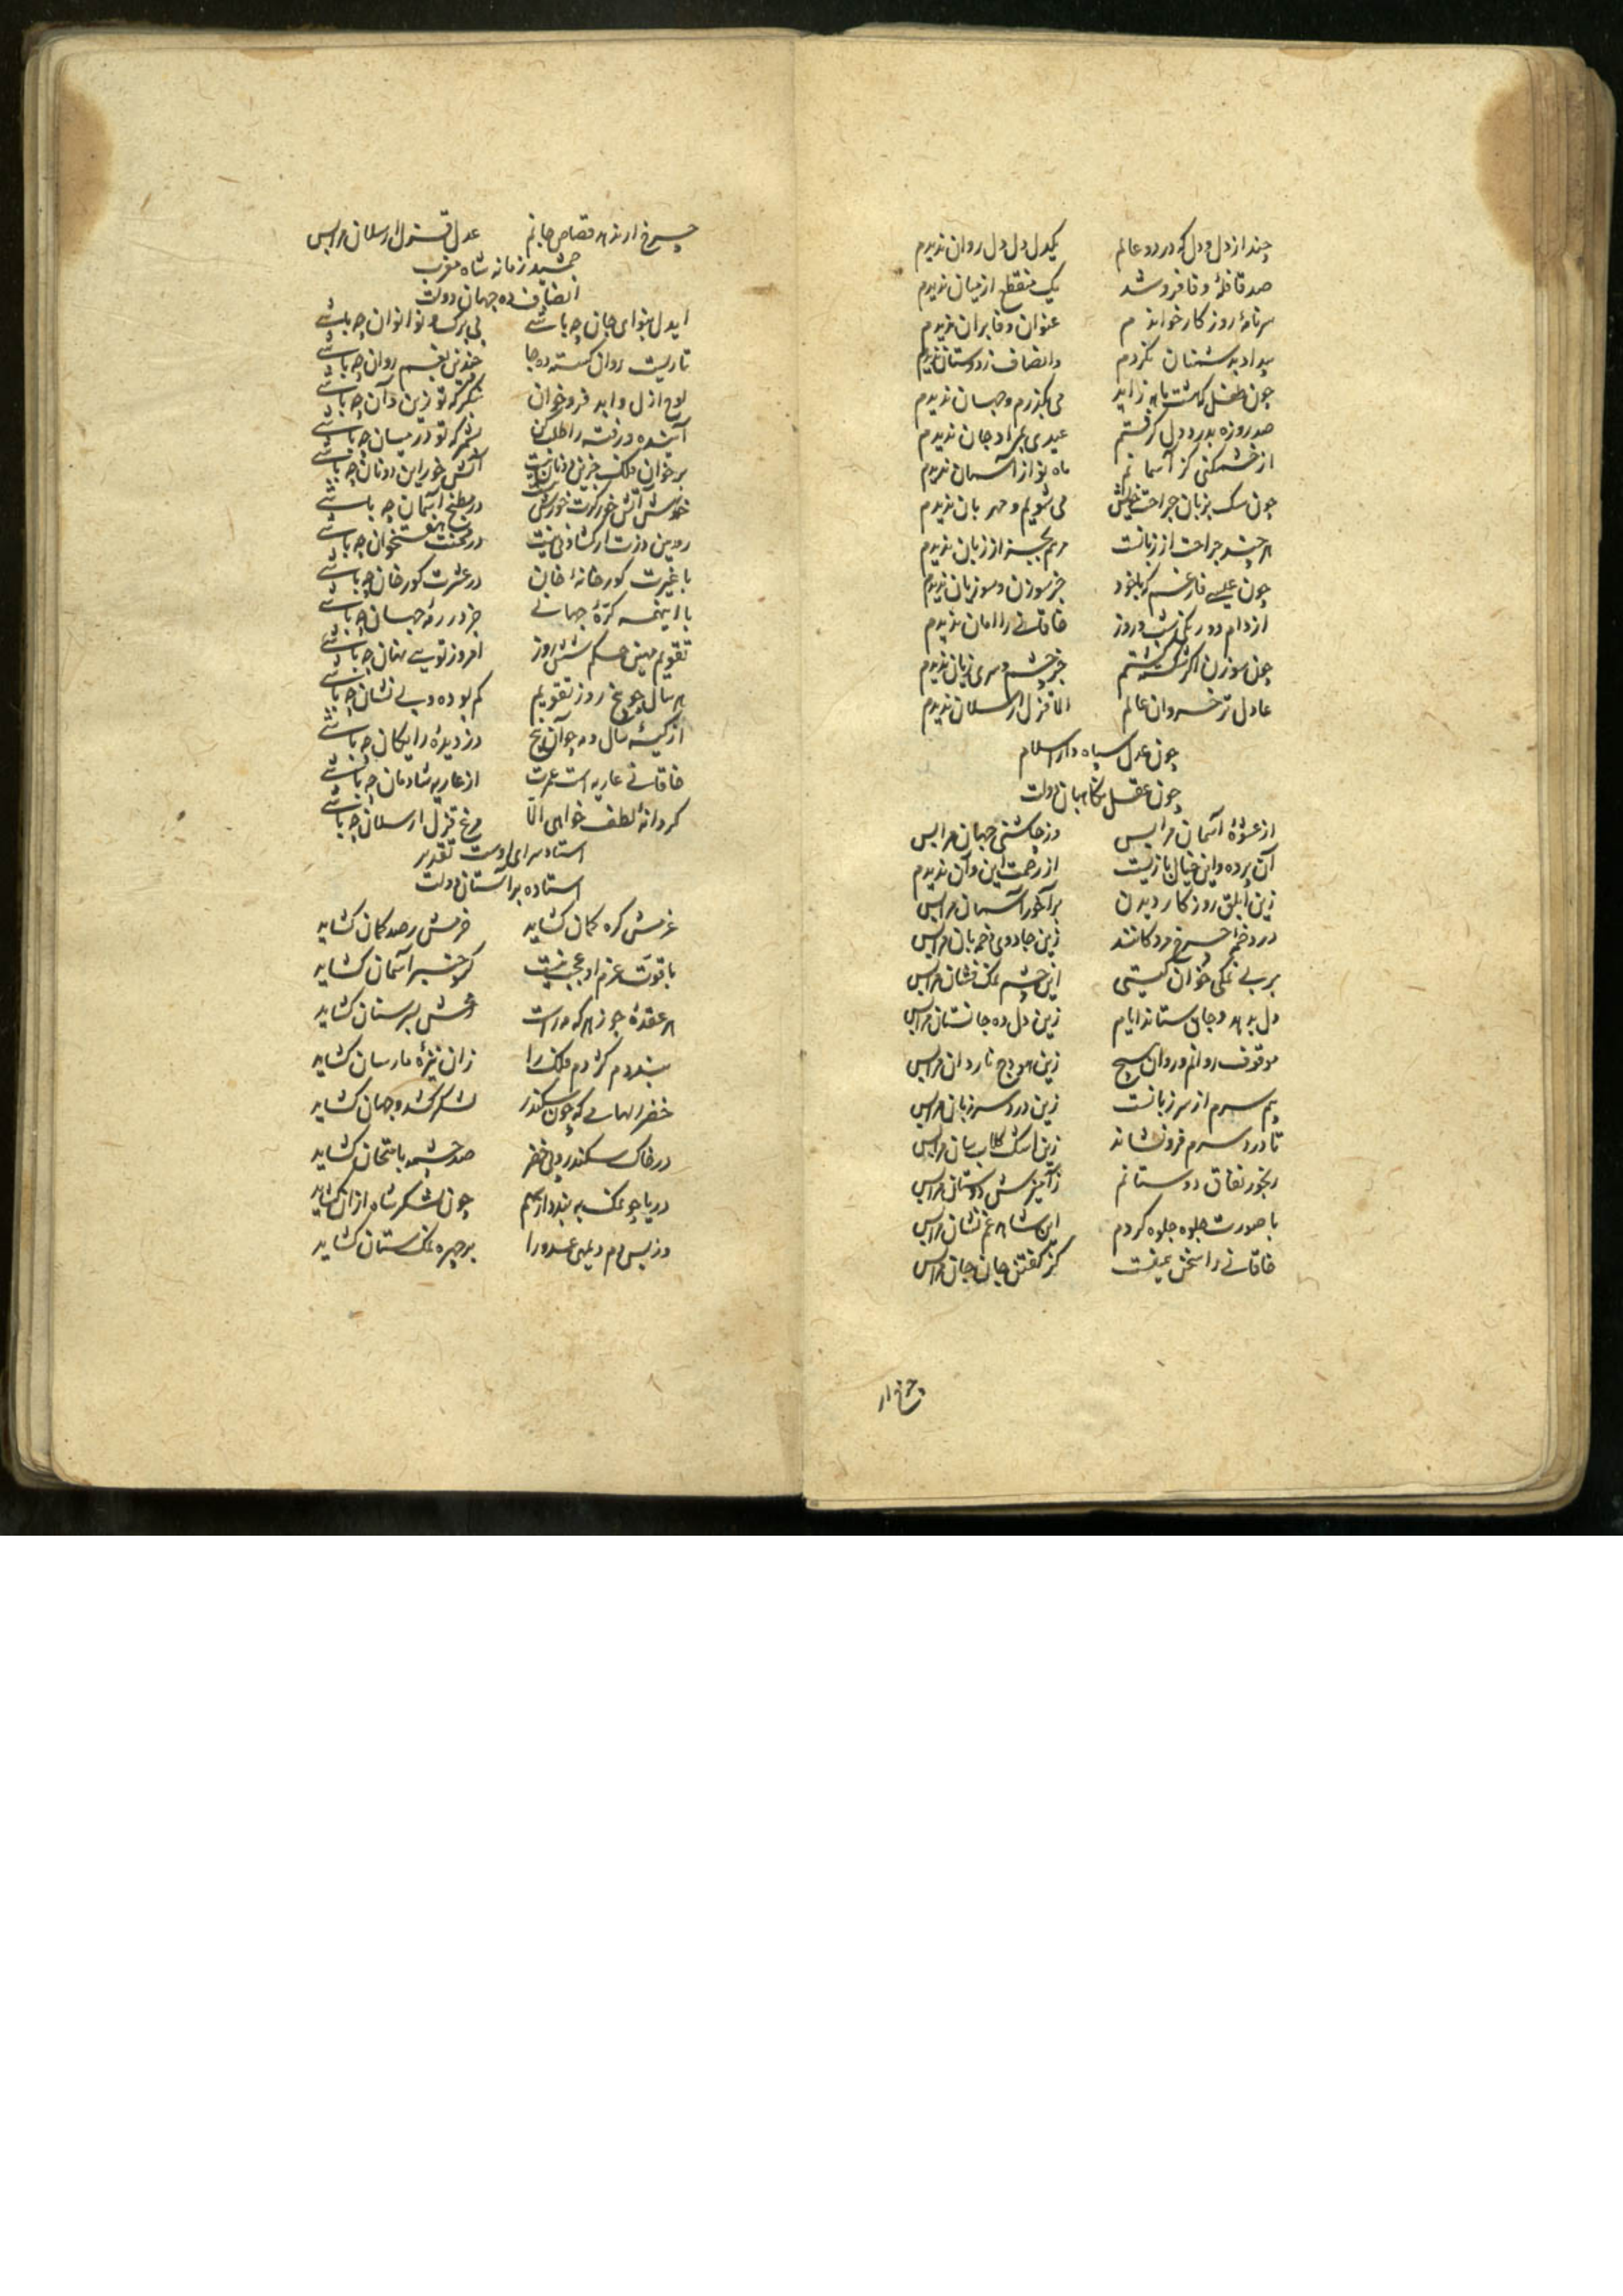 چند از دل و دل که در دو عالم یکدل دل دل روان ندیدم
صد قافلهٔ وفا فروشد یک منقطع از میان ندیدم
سرنامهٔ روزگار خواندم عنوان وفا بران ندیدم
بیداد بدشمنان نکردم وانصاف ز دوستان ندیدم
چون طفل که هشت ماهه زاید می بگذرم و جهان ندیدم
صد روزه بدرد دل گرفتم عیدی بمراد جان ندیدم
از خشکنی کز آسمانم ماه نو از آسمان ندیدم
چون سک بزبان جراحت خویش می شویم و مهربان ندیدم
هر چند جراحت از زبانست مرهم بجز از زبان ندیدم
چون عیسی فارغم که با خود جز سوزن و سوزیان ندیدم
از دام دو رنکی شب و روز خاقانی را امان ندیدم
چون سوزن اکر شکسته کشتم جز چشم و سری زیان ندیدم
عادل تر خسروان عالم الا قزل ارسلان ندیدم
چون عدل سپاه دار اسلام
چون عقل نکاهبان دولت
از عشوهٔ آسمان مرا بس وز چاشنی جهان مرا بس
آن پرده و این خیال بازیست از زحمت این و آن ندیدم
زین ابلق روزکار دیدن بر آخور آسمان مرا بس
در دخمهٔ چرخ مردکانند زین جادوی دخمه بان مرا بس
بر بی نمکی خوان کیتی این چشم نمک فشان مرا بس
دل بدهد و جان ستاند ایام زین دل ده جانستان مرا بس
موقوف روانم و روان هیچ زین هودج ناروان مرا بس
بیم سرم از سر زبانست زین درد سر زبان مرا بس
تا درد سرم فرونشاند زین اشک کلاب سان مرا بس
رنجور نفاق دوستانم زآمیزش دوستان مرا بس
با صورت جلوه جلوه کردم این شاهد غم نشان مرا بس
خاقانی را سخن همینست کز کفتن جان جان مرا بس
چرخ ار
چرخ ار ندهد قصاص جانم عدل قزل ارسلان مرا بس
جمشید زمانه شاه مغرب
انصاف ده جهان دولت
ایدل بنوای جان چه باشی بی برک و نوا نوان چه باشی
تاریست روان کسسته ده جا چندین بغم روان چه باشی
لوح ازل و ابد فروخوان بنکر که تو زین و آن چه باشی
آینده و رفته را طلب کن بشمر که تو در میان چه باشی
بر خوان فلک جز این دو نان نیست آتش خور این دو نان چه باشی
خورشید آتش خور در مطبخ آسمان چه باشی
رویین دژت ار کشادنی نیست در محنت هفتخوان چه باشی
با غیرت کورخانهٔ خان در عشرت کورخان چه باشی
با اینهمه کرهٔ جهانی جز در رمهٔ جهان چه باشی
تقویم مهین حکم شش روز امروز تویی نهان چه باشی
هر سال چو پنج روز تقویم کم بوده و بی نشان چه باشی
از کیسهٔ سال و مه چو آن پنج دزدیدهٔ رایکان چه باشی
خاقانی عاریه است عمرت از عاریه شادمان چه باشی
کر دانهٔ لطف خواهی الا مرغ قزل ارسلان چه باشی
استاد سرای اوست تقدیر
استاده بر آستان دولت
عزمش کره کمان کشاید حزمش رصد کمان کشاید
با قوت عزم او عجب نیست کر چنبر آسمان کشاید
هر عقدهٔ جوزهر که مه راست رمحش بسر سنان کشاید
بندد دم کژدم فلک را زان نیزهٔ مارسان کشاید
خضر الهامی که چون سکندر لشکر کشد و جهان کشاید
در خاک سکندر و پی خضر صد چشمه بامتحان کشاید
دریا چو نمک به بندد از سهم چون لشکر شاه از آن کشاید
وز بس دم دیلمی عدو را بر چهره نمک ستان کشاید